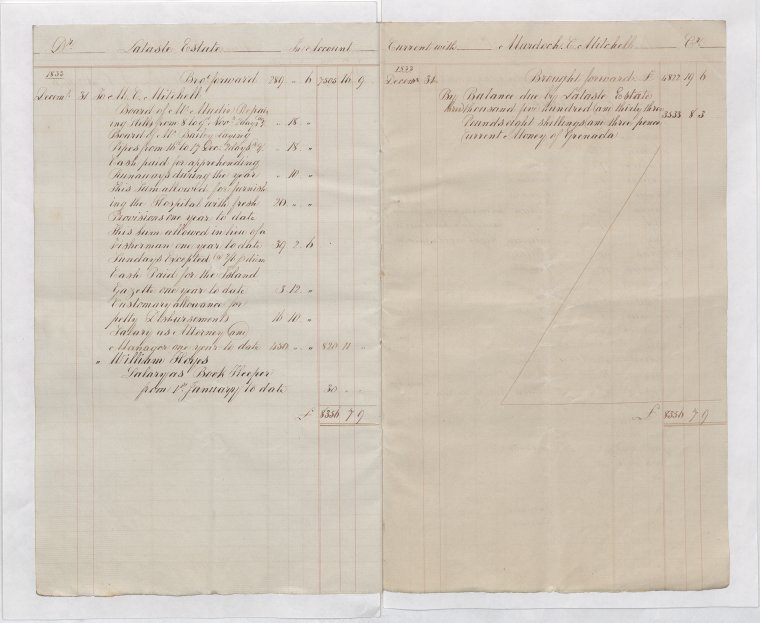 Dr Lataste Estate In Account
1833
Bro.t forward 289 .. 6 7505 16 9
Decem.r 31 To M. C. Mitchell
Board of Mr Mudie Repair
ing Stills from 8 to 9 Nov.r 2 days 9/ .. 18 ..
Board of Mr Bailey laying
Pipes from 16 to 17 Dec.r 2 days 9/ .. 18 ..
Cash paid for apprehending
Runaways during the year .. 10 ..
This sum allowed for furnish
ing the Hospital with fresh 20 .. ..
Provisions one year to date
This sum allowed in lieu of a
Fisherman one year to date 39 2 6
Sundays Excepted @ 2/6 p diem
Cash Paid for the Island
Gazette one year to date 3 12 ..
Customary allowance for
petty Disbursements 16 10 ..
Salary as Attorney and
Manager one year to date 450 .. .. 820 11 ..
" William Noyes
Salary as Book Keeper
from 1st January to date 30 .. ..
£ 8356 7 9
Current with Murdoch C. Mitchell Cr
1833
Decem.r 31 Brought forward £ 4822 19 6
By Balance due by Lataste Estate
three thousand five hundred and thirty three
Pounds eight shillings and three pence 3533 8 3
Current Money of Grenada
£ 8356 7 9